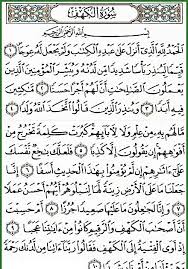 سُورَةُ الكَهْفِ
بِسْمِ اللَّهِ الرَّحْمَٰنِ الرَّحِيمِ
الْحَمْدُ لِلَّهِ الَّذِي أَنزَلَ عَلَىٰ عَبْدِهِ الْكِتَٰبَ وَلَمْ يَجْعَل لَّهُ عِوَجَا ١
قَيِّمًا لِّيُنذِرَ بَأْسًا شَدِيدًا مِّن لَّدُنْهُ وَيُبَشِّرَ الْمُؤْمِنِينَ الَّذِينَ
يَعْمَلُونَ الصَّٰلِحَٰتِ أَنَّ لَهُمْ أَجْرًا حَسَنًا ٢ مَّٰكِثِينَ فِيهِ
أَبَدًا ٣ وَيُنذِرَ الَّذِينَ قَالُوا اتَّخَذَ اللَّهُ وَلَدًا ٤
مَّا لَهُم بِهِ مِنْ عِلْمٍ وَلَا لِءَابَائِهِمْ كَبُرَتْ كَلِمَةً تَخْرُجُ مِنْ
أَفْوَٰهِهِمْ إِن يَقُولُونَ إِلَّا كَذِبًا ٥ فَلَعَلَّكَ بَٰخِعٌ نَّفْسَكَ
عَلَىٰ ءَاثَٰرِهِمْ إِن لَّمْ يُؤْمِنُوا بِهَٰذَا الْحَدِيثِ أَسَفًا ٦ إِنَّا
جَعَلْنَا مَا عَلَى الْأَرْضِ زِينَةً لَّهَا لِنَبْلُوَهُمْ أَيُّهُمْ أَحْسَنُ عَمَلًا
٧ وَإِنَّا لَجَٰعِلُونَ مَا عَلَيْهَا صَعِيدًا جُرُزًا ٨ أَمْ حَسِبْتَ
أَنَّ أَصْحَٰبَ الْكَهْفِ وَالرَّقِيمِ كَانُوا مِنْ ءَايَٰتِنَا عَجَبًا ٩
إِذْ أَوَى الْفِتْيَةُ إِلَى الْكَهْفِ فَقَالُوا رَبَّنَا ءَاتِنَا مِن لَّدُنكَ رَحْمَةً